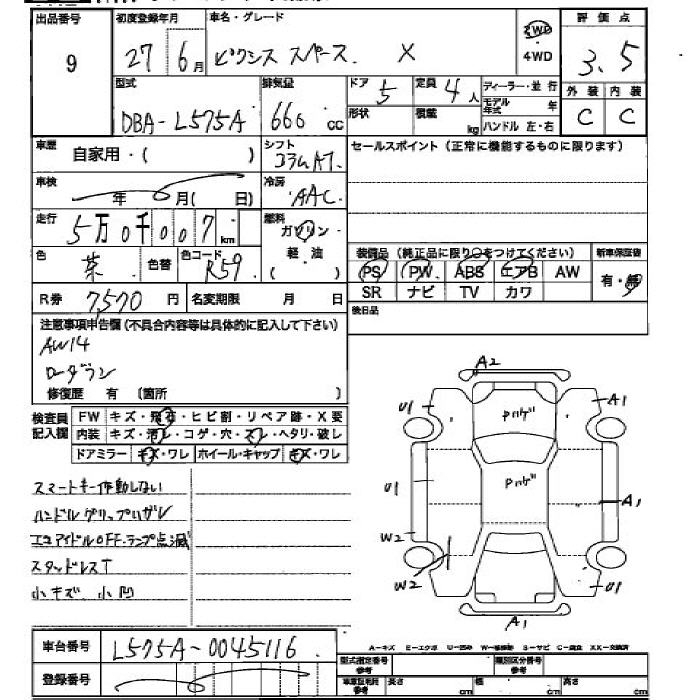 出品番号 初度登録年月 車名・グレード 評価点
9 27年 6月 ピクシス スペース X 2WD・4WD 3.5
型式 排気量 ドア 5 定員 4人 ディーラー・並行 外装 内装
DBA-L575A 660 cc 形状 積載 kg モデル年式 年 ハンドル 左・右 C C
車歴 自家用・( ) シフト コラムAT セールスポイント (正常に機能するものに限ります)
車検 年 月( 日) 冷房 AAC
走行 5万0千007km 燃料 ガソリン・軽油( )
装備品 (純正品に限り○をつけてください) 新車保証書
色 茶 色替 色コード R59 PS PW ABS エアB AW 有・無
R券 7,570円 名変期限 月 日 SR ナビ TV カワ
注意事項申告欄 (不具合内容等は具体的に記入して下さい) 後日品
AW14
ローダウン
修復歴 有 〔箇所 〕
検査員記入欄 FW キズ・飛石・ヒビ割・リペア跡・X要
内装 キズ・汚レ・コゲ・穴・スレ・ヘタリ・破レ
ドアミラー キズ・ワレ ホイール・キャップ キズ・ワレ
スマートキー作動しない
ハンドルグリップハガレ
エコアイドルOFF・ランプ点滅
スタッドレスT
小キズ、小凹
A2
U1 Pハゲ A1
U1 Pハゲ A1
W2
W2 U1
A1
車台番号 L575A-0045116
登録番号
A-キズ E-エクボ U-凹み W-補修跡 S-サビ C-腐食 XX-交換済
型式指定番号 参考 類別区分番号 参考
車庫証明用 参考 長さ cm 幅 cm 高さ cm